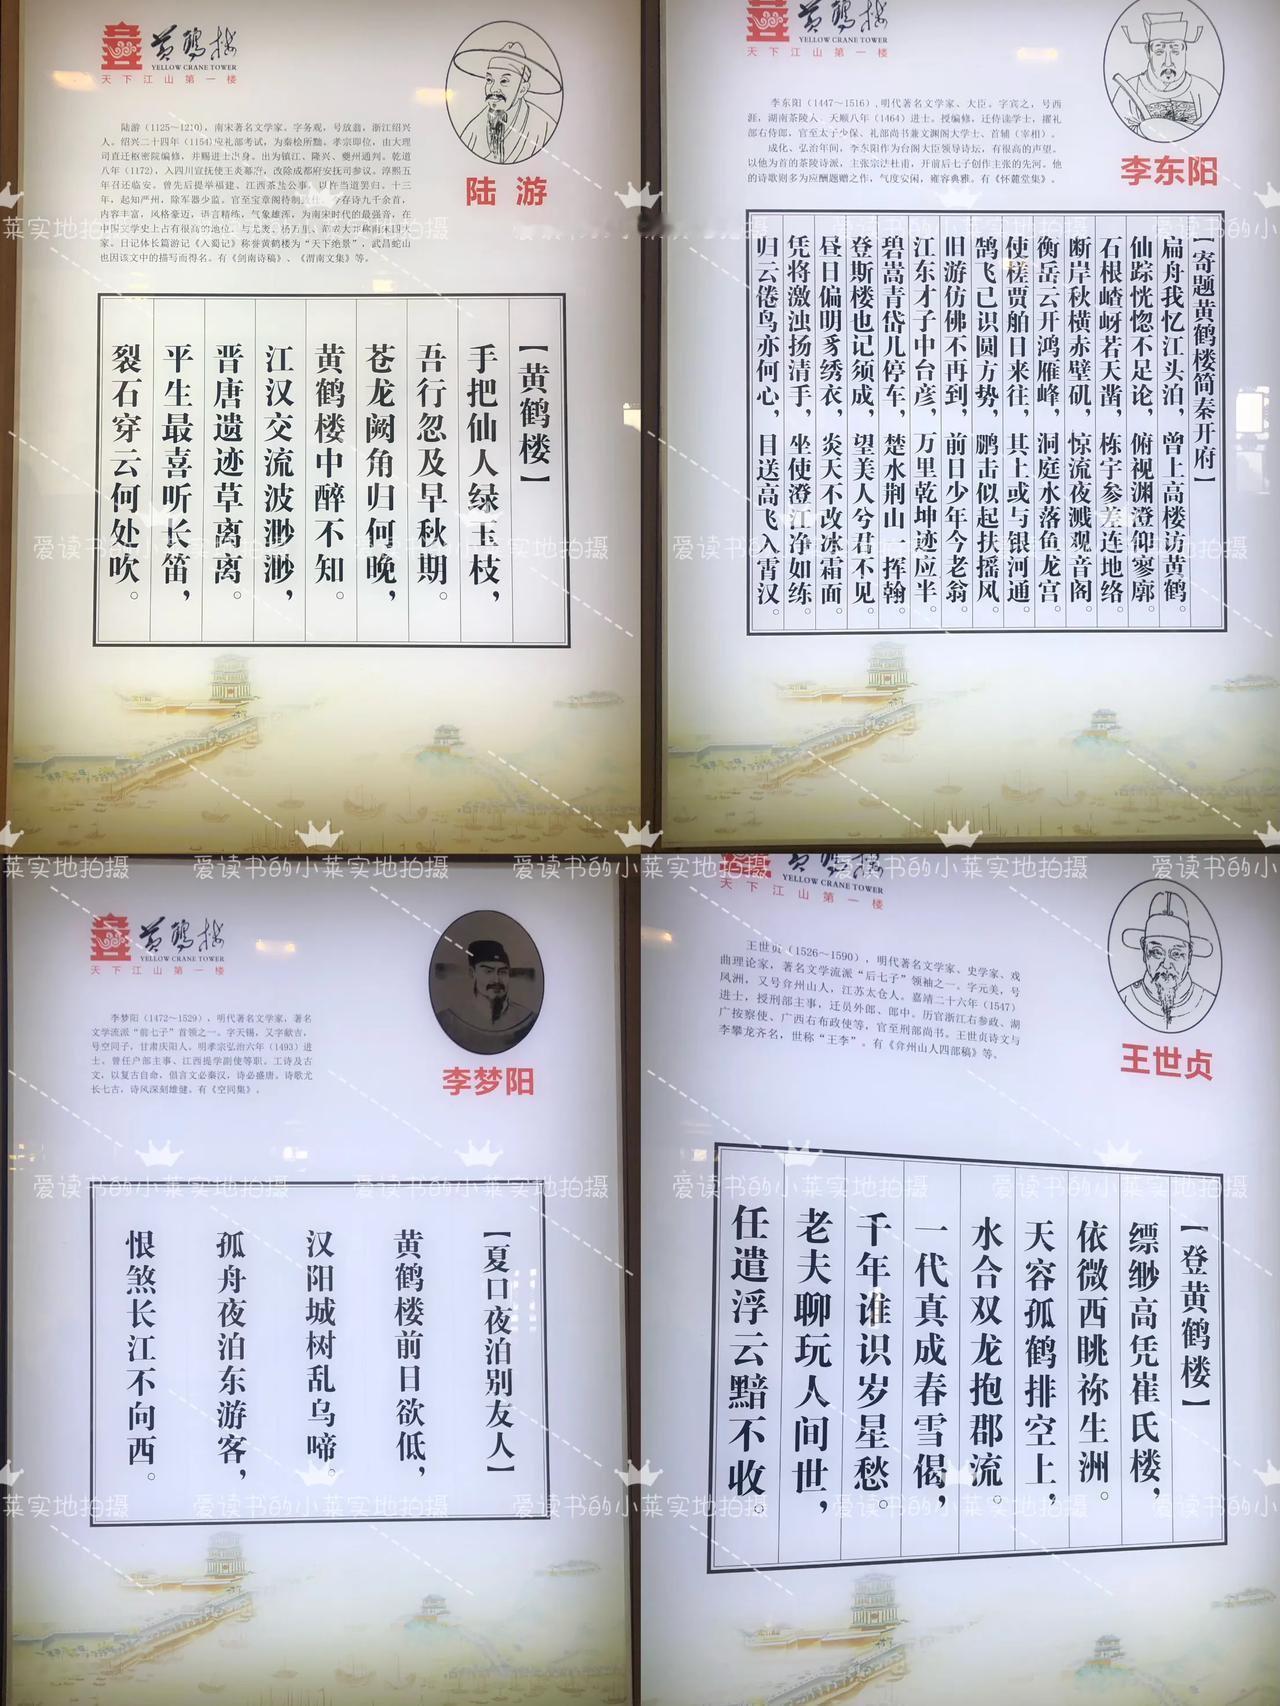 黄鹤楼
YELLOW CRANE TOWER
天下江山第一楼
陆游（1125～1210），南宋著名文学家。字务观，号放翁，浙江绍兴
人。绍兴二十四年（1154）应礼部考试，为秦桧所黜。孝宗即位，由大理
司直迁枢密院编修，并赐进士出身。出为镇江、隆兴、夔州通判。乾道
八年（1172），入四川宣抚使王炎幕府，改除成都府安抚司参议。淳熙五
年召还临安。曾先后提举福建、江西茶盐公事，以忤当道罢归。十三
年，起知严州，除军器少监。官至宝章阁待制致仕。今存诗九千余首，
内容丰富，风格豪迈，语言精练，气象雄浑，为南宋时代的最强音，在
中国文学史上占有很高的地位。与尤袤、杨万里、范成大并称南宋四大
家。日记体长篇游记《入蜀记》称誉黄鹤楼为“天下绝景”，武昌蛇山
也因该文中的描写而得名。有《剑南诗稿》、《渭南文集》等。
陆游
【黄鹤楼】
手把仙人绿玉枝，
吾行忽及早秋期。
苍龙阙角归何晚，
黄鹤楼中醉不知。
江汉交流波渺渺，
晋唐遗迹草离离。
平生最喜听长笛，
裂石穿云何处吹。
黄鹤楼
YELLOW CRANE TOWER
天下江山第一楼
李东阳（1447～1516），明代著名文学家、大臣。字宾之，号西
涯，湖南茶陵人。天顺八年（1464）进士。授编修，迁侍读学士，擢礼
部右侍郎，官至太子少保、礼部尚书兼文渊阁大学士、首辅（宰相）。
成化、弘治年间，李东阳作为台阁大臣领导诗坛，有很高的声望。
以他为首的茶陵诗派，主张宗法杜甫，开前后七子创作主张的先河。他
的诗歌则多为应酬题赠之作，气度安闲，雍容典雅。有《怀麓堂集》。
李东阳
【寄题黄鹤楼简秦开府】
扁舟我忆江头泊，曾上高楼访黄鹤。
仙踪恍惚不足论，俯视渊澄仰寥廓。
石根嵖岈若天凿，栋宇参差连地络。
断岸秋横赤壁矶，惊流夜溅观音阁。
衡岳云开鸿雁峰，洞庭水落鱼龙宫。
使槎贾舶日来往，其上或与银河通。
鹄飞已识圆方势，鹏击似起扶摇风。
旧游仿佛不再到，前日少年今老翁。
江东才子中台彦，万里乾坤迹应半。
碧嵩青岱几停车，楚水荆山一挥翰。
登斯楼也记须成，望美人兮君不见。
昼日偏明豸绣衣，炎天不改冰霜面。
凭将激浊扬清手，坐使澄江净如练。
归云倦鸟亦何心，目送高飞入霄汉。
黄鹤楼
天下江山第一楼
李梦阳（1472～1529），明代著名文学家，著名
文学流派“前七子”首领之一。字天锡，又字献吉，
号空同子，甘肃庆阳人。明孝宗弘治六年（1493）进
士。曾任户部主事、江西提学副使等职。工诗及古
文，以复古自命，倡言文必秦汉，诗必盛唐。诗歌尤
长七古，诗风深刻雄健。有《空同集》。
李梦阳
【夏口夜泊别友人】
黄鹤楼前日欲低，
汉阳城树乱乌啼。
孤舟夜泊东游客，
恨煞长江不向西。
黄鹤楼
YELLOW CRANE TOWER
天下江山第一楼
王世贞（1526～1590），明代著名文学家、史学家、戏
曲理论家，著名文学流派“后七子”领袖之一。字元美，号
凤洲，又号弇州山人，江苏太仓人。嘉靖二十六年（1547）
进士，授刑部主事，迁员外郎、郎中。历官浙江右参政、湖
广按察使、广西右布政使等，官至刑部尚书。王世贞诗文与
李攀龙齐名，世称“王李”。有《弇州山人四部稿》等。
王世贞
【登黄鹤楼】
缥缈高凭崔氏楼，
依微西眺祢生洲。
天容孤鹤排空上，
水合双龙抱郡流。
一代真成春雪偈，
千年谁识岁星愁。
老夫聊玩人间世，
任遣浮云黯不收。
爱读书的小莱实地拍摄